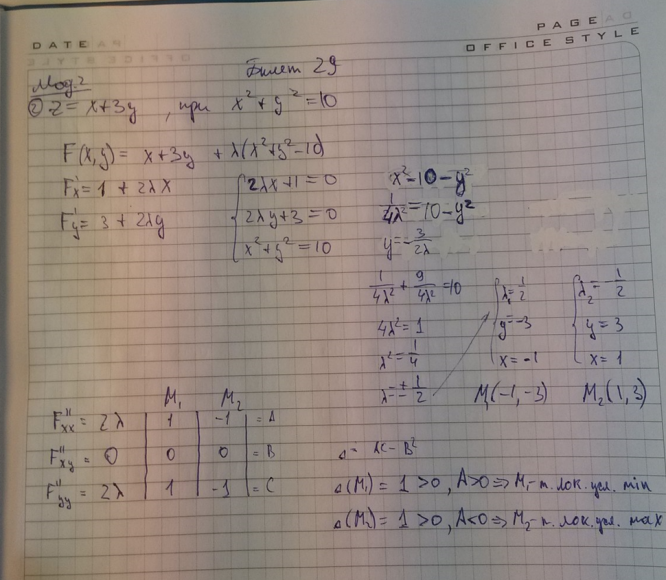 DATE
PAGE
OFFICE STYLE
Мод.2
Билет 29
② z = x+3y , при x² + y² = 10
F(x,y) = x+3y + λ(x²+y²-10)
F'x = 1 + 2λx
F'y = 3 + 2λy
2λx+1 = 0
2λy+3 = 0
x²+y² = 10
x² = 10 - y²
1/4λ² = 10 - y²
y = -3/2λ
1/4λ² + 9/4λ² = 10
4λ² = 1
λ² = 1/4
λ = ± 1/2
λ₁ = 1/2
y = -3
x = -1
λ₂ = -1/2
y = 3
x = 1
M₁(-1, -3)
M₂(1, 3)
M₁ M₂
F''xx = 2λ | 1 | -1 | = A
F''xy = 0 | 0 | 0 | = B
F''yy = 2λ | 1 | -1 | = C
Δ = AC - B²
Δ(M₁) = 1 > 0, A>0 ⇒ M₁ - т. лок. усл. min
Δ(M₂) = 1 > 0, A<0 ⇒ M₂ - т. лок. усл. max